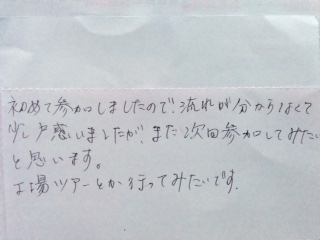 初めて参加しましたので、流れが分からなくて
少し戸惑いましたが、また次回参加してみたい
と思います。
工場ツアーとか行ってみたいです.